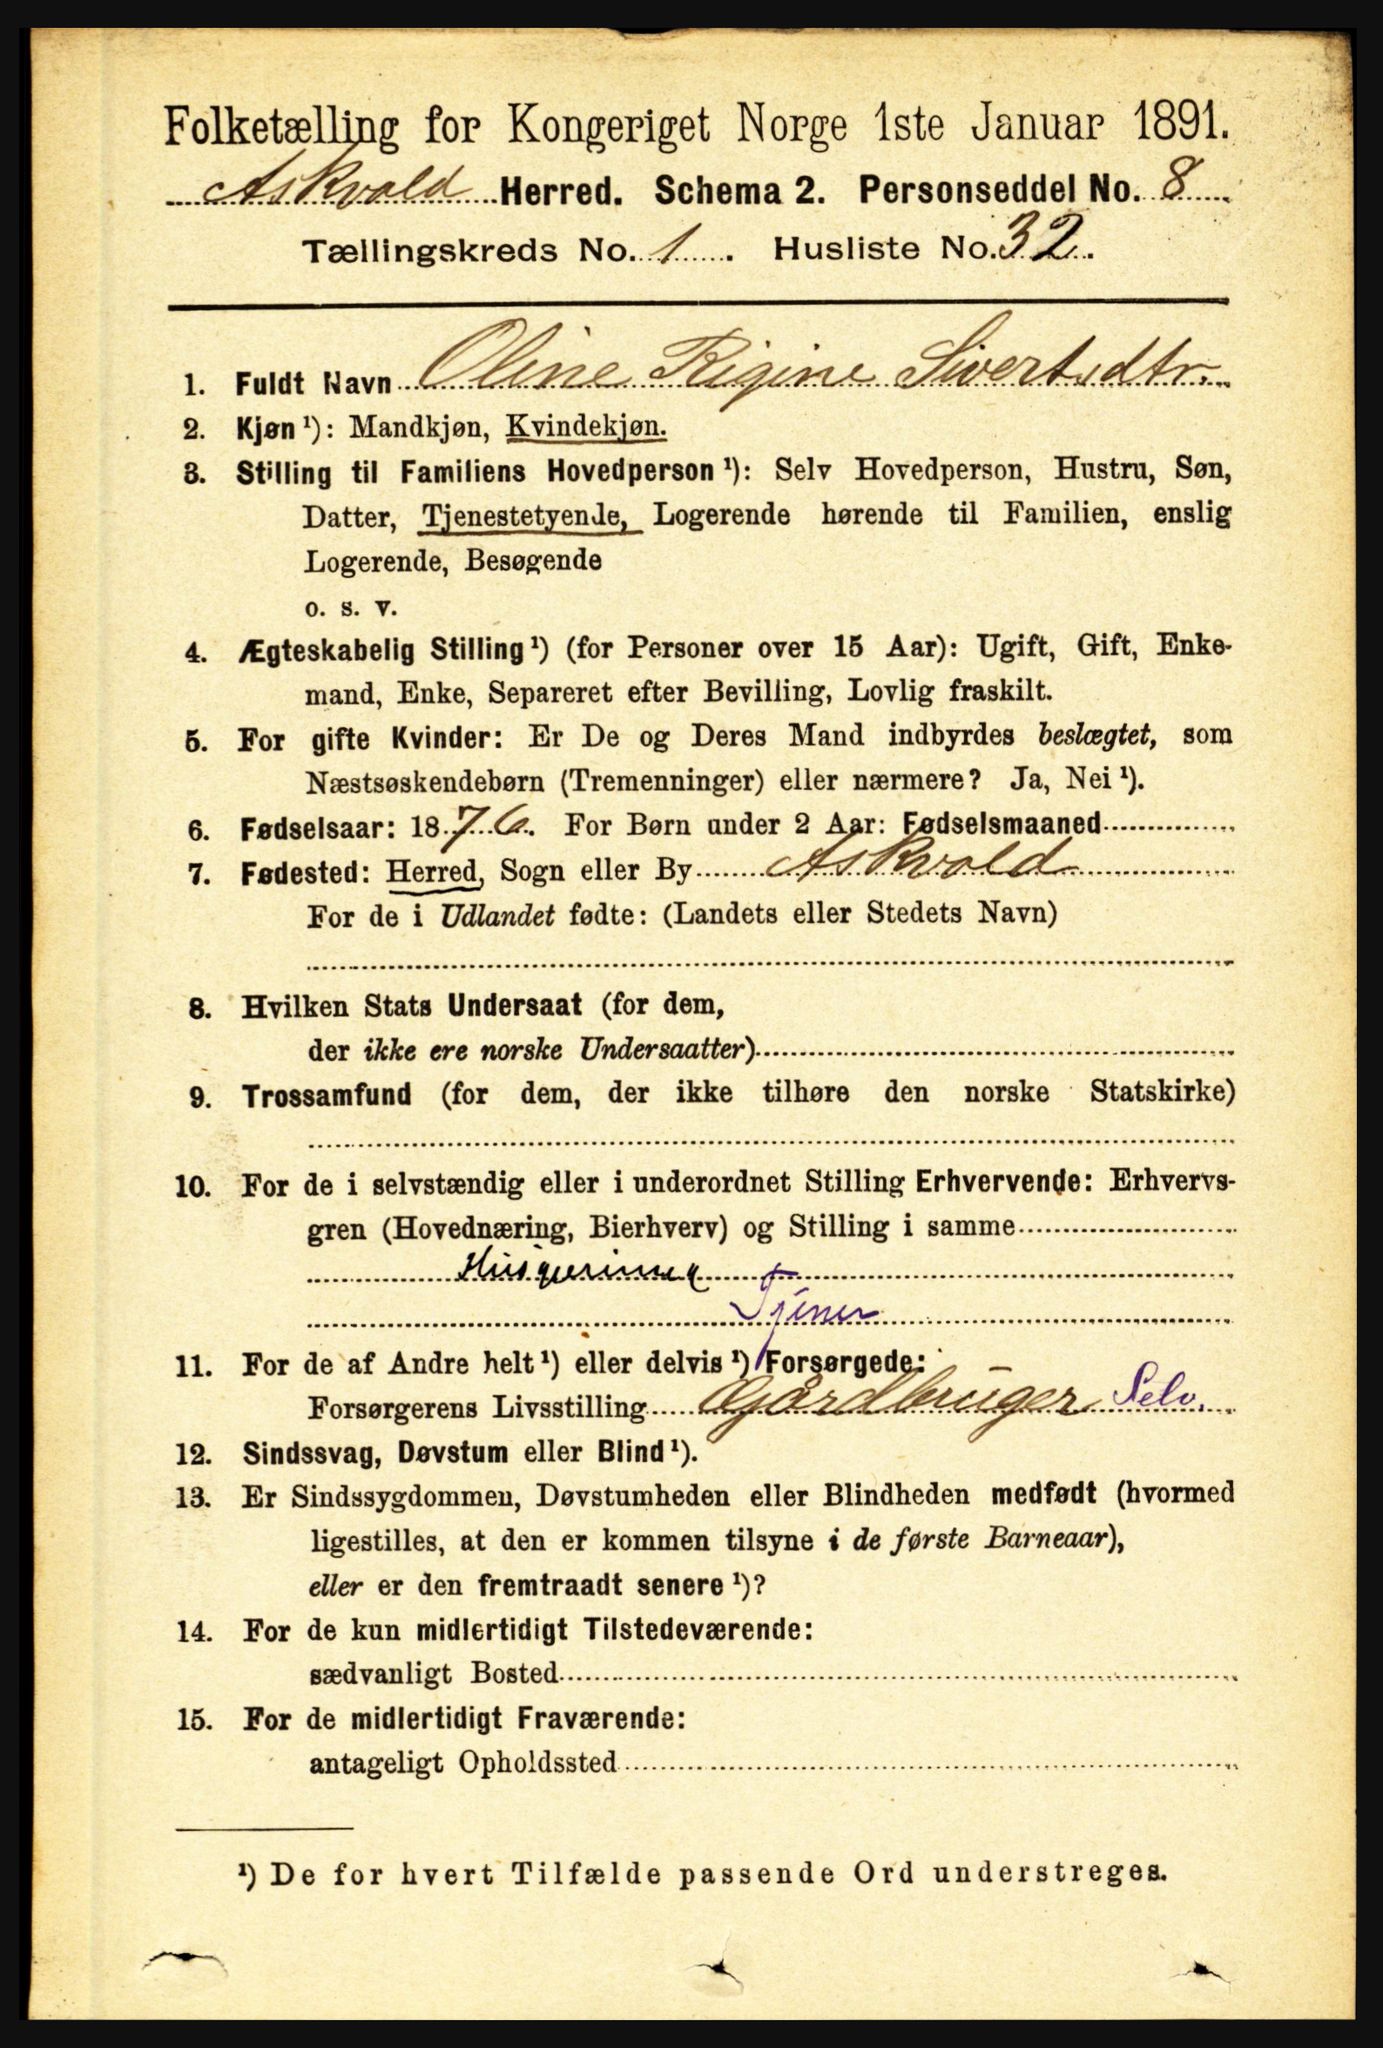 Folketælling for Kongeriget Norge 1ste Januar 1891.
Askvold Herred. Schema 2. Personseddel No. 8
Tællingskreds No. 1. Husliste No. 32.
1. Fuldt Navn Oline Rigine Sivertsdtr.
2. Kjøn¹): Mandkjøn, Kvindekjøn.
3. Stilling til Familiens Hovedperson¹): Selv Hovedperson, Hustru, Søn,
Datter, Tjenestetyende, Logerende hørende til Familien, enslig
Logerende, Besøgende
o. s. v.
4. Ægteskabelig Stilling¹) (for Personer over 15 Aar): Ugift, Gift, Enke-
mand, Enke, Separeret efter Bevilling, Lovlig fraskilt.
5. For gifte Kvinder: Er De og Deres Mand indbyrdes beslægtet, som
Næstsøskendebørn (Tremenninger) eller nærmere? Ja, Nei¹).
6. Fødselsaar: 1876. For Børn under 2 Aar: Fødselsmaaned
7. Fødested: Herred, Sogn eller By Askvold
For de i Udlandet fødte: (Landets eller Stedets Navn)
8. Hvilken Stats Undersaat (for dem,
der ikke ere norske Undersaatter)
9. Trossamfund (for dem, der ikke tilhøre den norske Statskirke)
10. For de i selvstændig eller i underordnet Stilling Erhvervende: Erhvervs-
gren (Hovednæring, Bierhverv) og Stilling i samme
Husgjerning
Tjener
11. For de af Andre helt¹) eller delvis¹) Forsørgede:
Forsørgerens Livsstilling Gårdbruger Selv.
12. Sindssvag, Døvstum eller Blind¹).
13. Er Sindssygdommen, Døvstumheden eller Blindheden medfødt (hvormed
ligestilles, at den er kommen tilsyne i de første Barneaar),
eller er den fremtraadt senere¹)?
14. For de kun midlertidigt Tilstedeværende:
sædvanligt Bosted
15. For de midlertidigt Fraværende:
antageligt Opholdssted
¹) De for hvert Tilfælde passende Ord understreges.